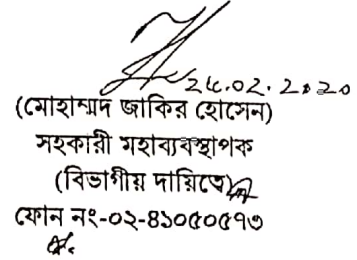 24.02.2020
(মোহাম্মদ জাকির হোসেন)
সহকারী মহাব্যবস্থাপক
(বিভাগীয় দায়িত্বে)
ফোন নং-০২-৪১০৫০৫৭৩